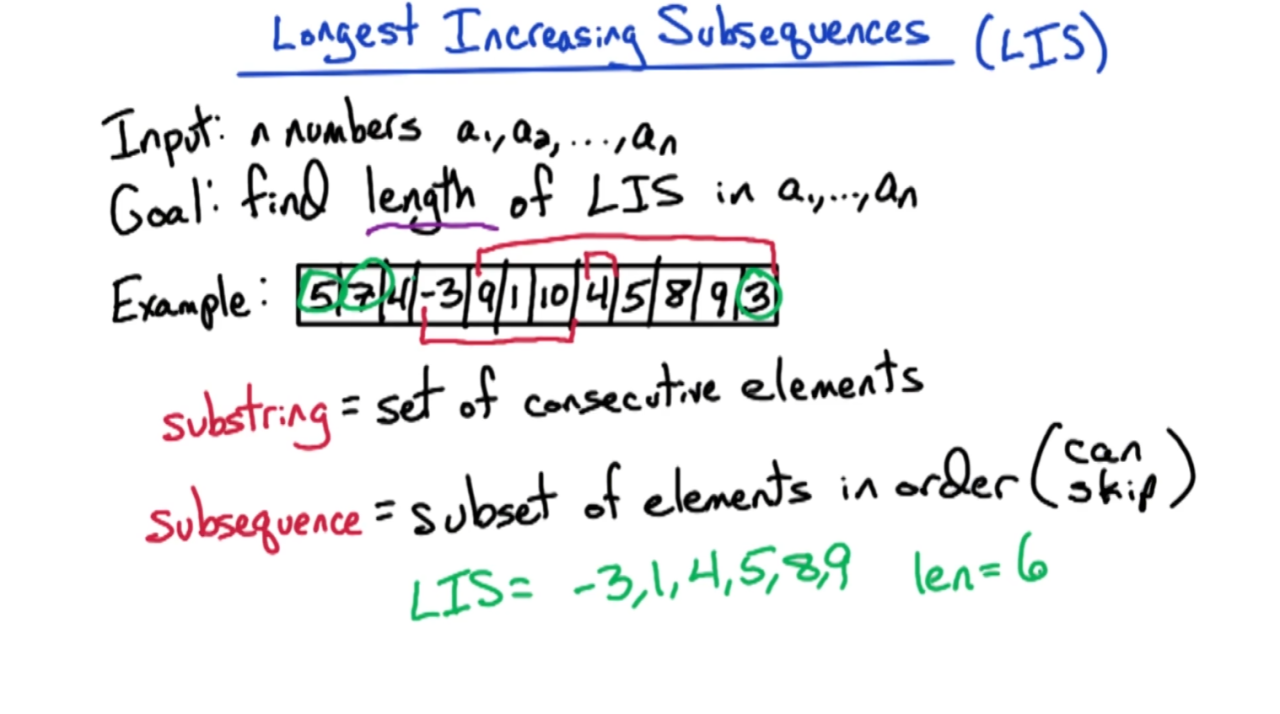 Longest Increasing Subsequences (LIS)
Input: n numbers a₁,a₂,...,aₙ
Goal: find length of LIS in a₁,...,aₙ
Example: 5 7 4 -3 9 1 10 4 5 8 9 3
substring = set of consecutive elements
subsequence = subset of elements in order (can skip)
LIS = -3,1,4,5,8,9 len=6